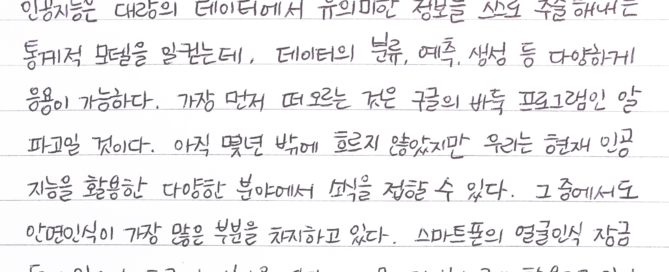 인공지능은 대량의 데이터에서 유의미한 정보를 스스로 추출해내는
통계적 모델을 일컫는데, 데이터의 분류, 예측, 생성 등 다양하게
응용이 가능하다. 가장 먼저 떠오르는 것은 구글의 바둑 프로그램인 알
파고일 것이다. 아직 몇년 밖에 흐르지 않았지만 우리는 현재 인공
지능을 활용한 다양한 분야에서 소식을 접할 수 있다. 그 중에서도
안면인식이 가장 많은 부분을 차지하고 있다. 스마트폰의 얼굴인식 잠금